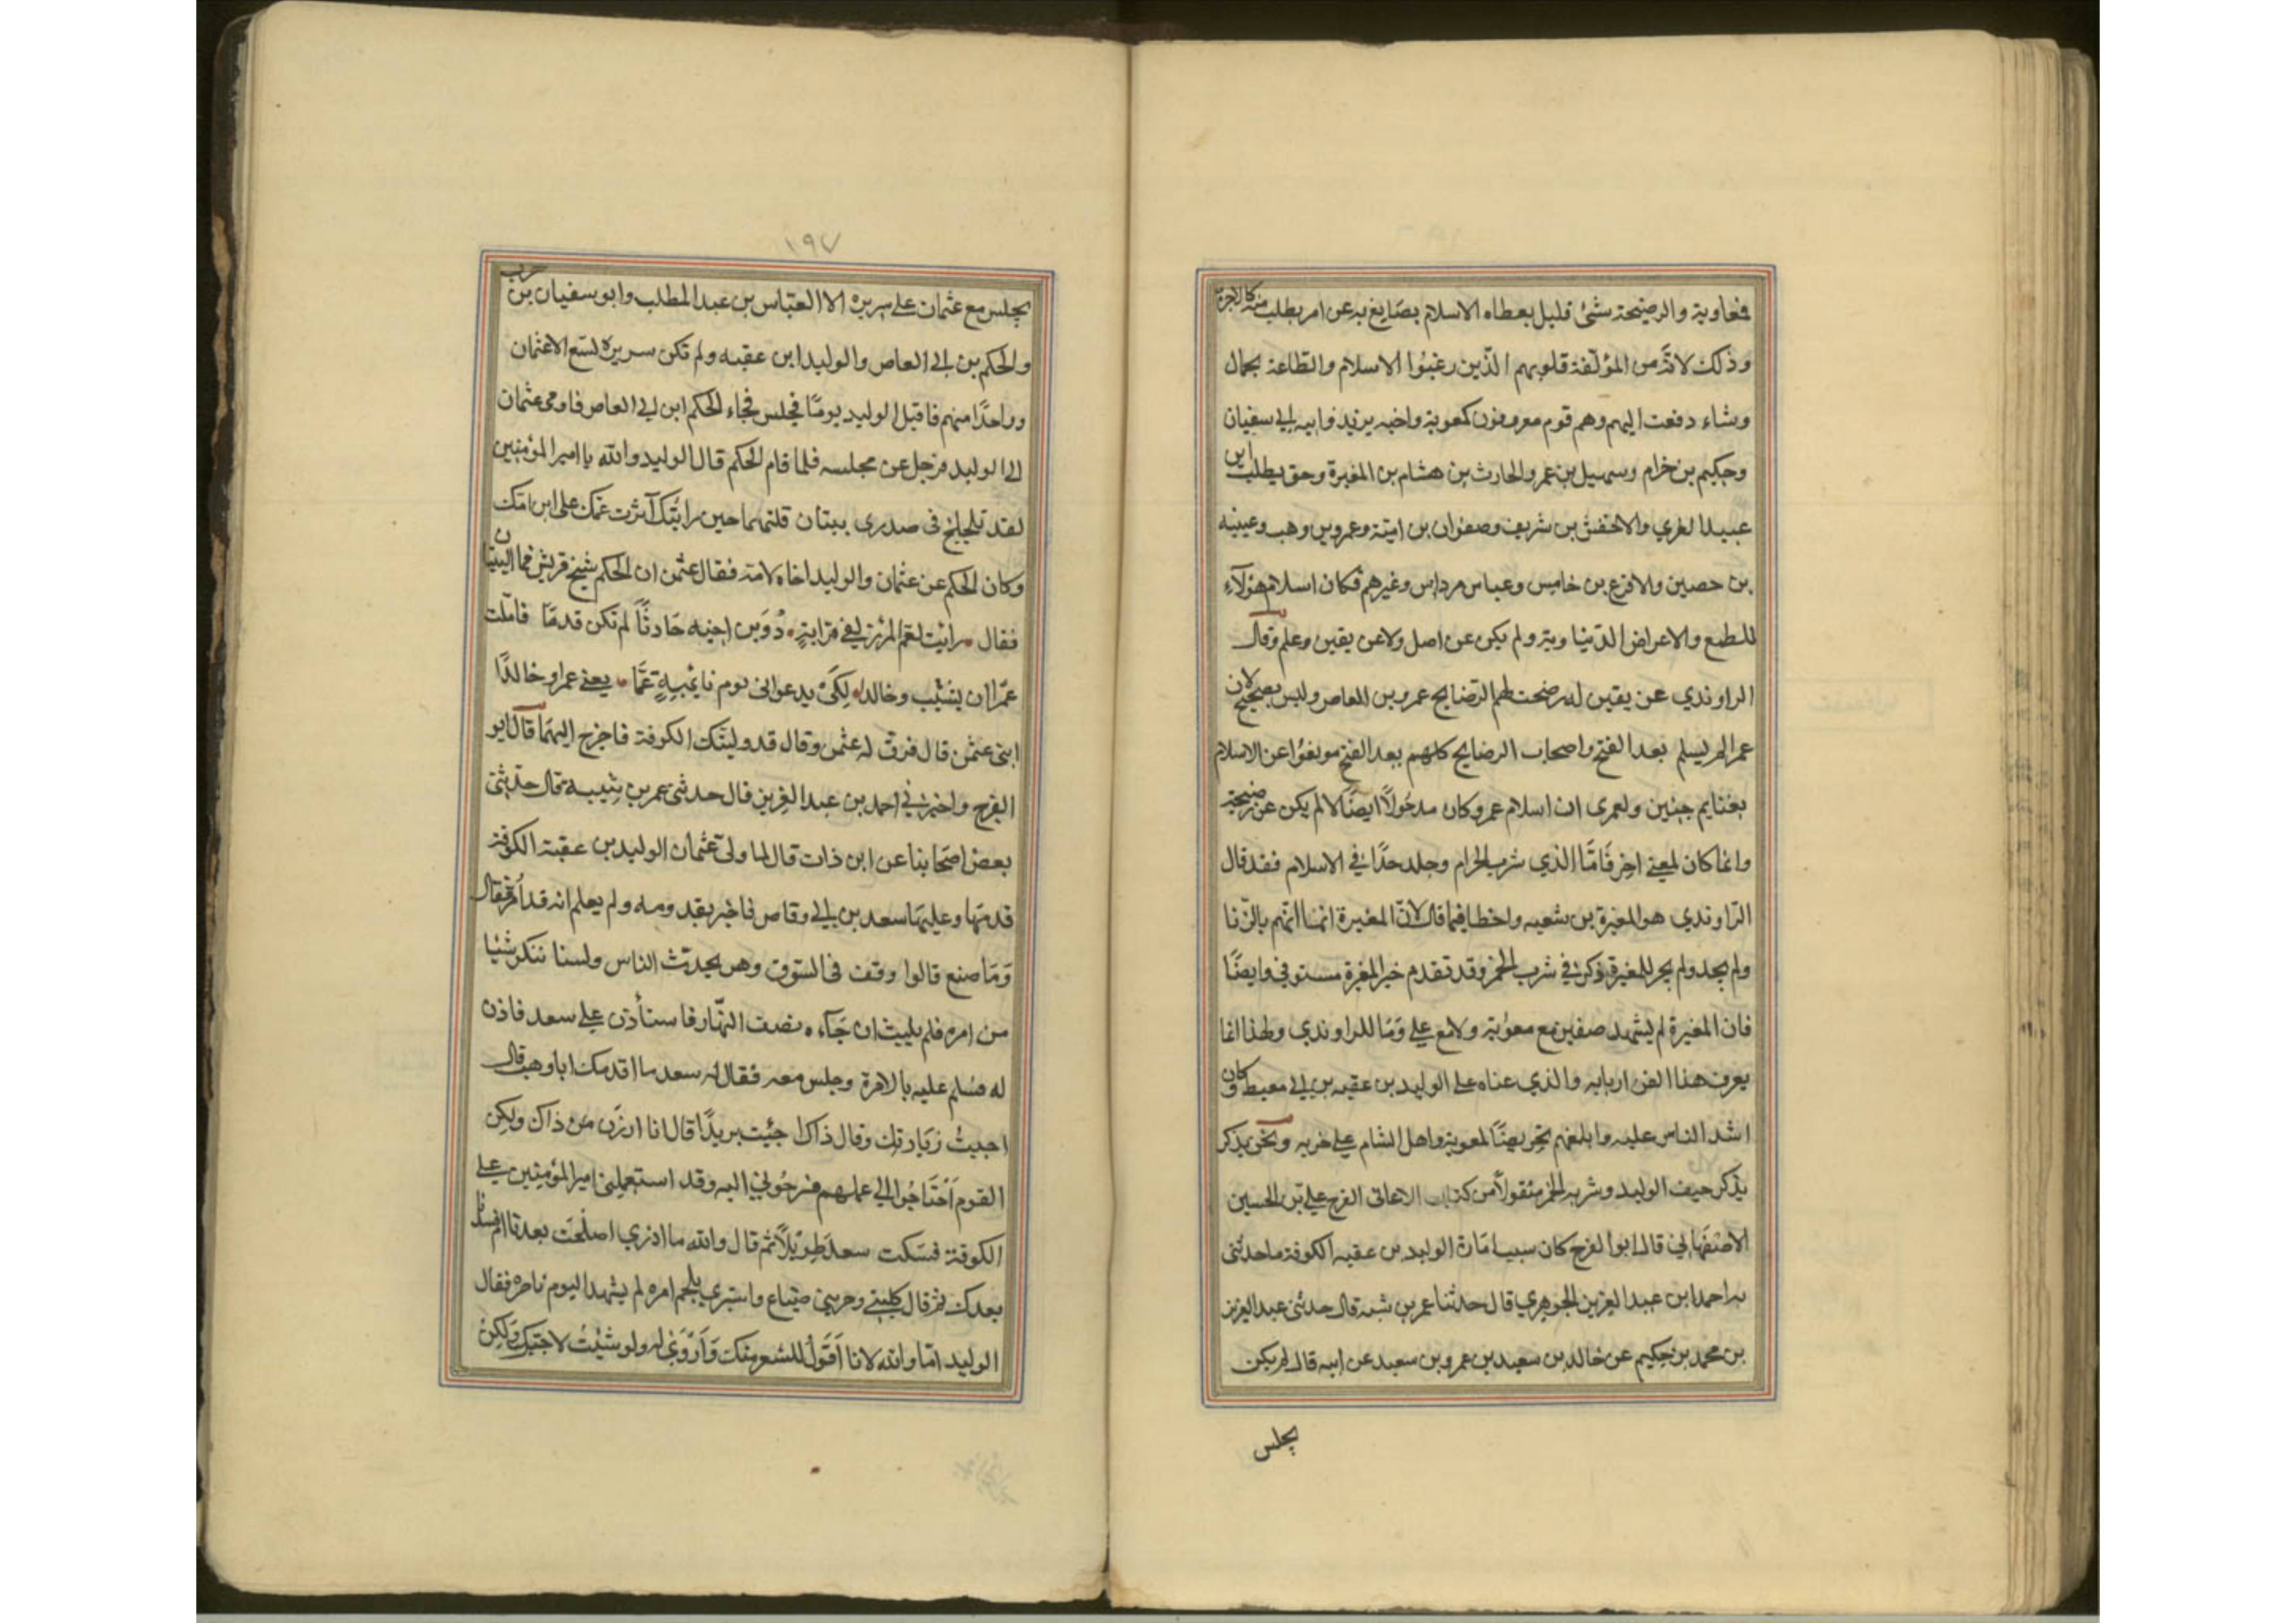 فمعاوية والرضيحة شئ قليل يعطاه الاسلام يصايغ به عن امر يطلب منه كالاجرة
وذلك لانه من المؤلفة قلوبهم الذين رغبوا الاسلام والطاعة بجمال
وشاء دفعت اليهم وهم قوم معروفون كمعوية واخيه يزيد وابيه ابي سفيان
وحكيم بن خرام وسهيل بن عمر والحارث بن هشام بن المغيرة وحق يطلب ابن
عبيد العزي والاخفش بن شريف وصفوان بن امية وعمرو بن وهب وعيينه
بن حصين والاقرع بن خابس وعباس مرداس وغيرهم فكان اسلام هؤلآء
للطمع والاعراض الدنيا وية ولم يكن عن اصل ولا عن يقين وعلم وقال
الراوندي عن يقين له رضحت لهم الرضايح عمرو بن العاص وليس بصحيح لان
عمرا لم يسلم بعد الفتح واصحاب الرضايح كلهم بعد الفتح صونعوا عن الاسلام
بغنايم حنين ولعمري ان اسلام عمرو كان مدخولًا ايضًا الا لم يكن عن رضيحة
وانما كان لمعنى اخر فَامَّا الذي شرب الحرام وجلد حدًا في الاسلام فقد قال
الرّاوندي هو المغيرة بن شعبه واخطا فيما قال لانّ المغيرة انما اتهم بالزّنا
ولم يحد ولم يجر للمغيرة ذكر في شرب الخمر وقد تقدم خبر المغيرة مستوفي وايضًا
فان المغيرة لم يشهد صفين مع معوية ولا مع علي وَمَا للراوندي ولهذا انما
يعرف هذا الفن اربابه والذي عناه علي الوليد بن عقبه بن ابي معيط وكان
اشد الناس عليه وابلغهم تحريضًا لمعوية واهل الشام علي حربه ونحن نذكر
يذكر حيف الوليد وشربه الخمر منقولًا من كتاب الاغانى الفرج علي بن الحسين
الاصْفَهَاني قال ابوا لفرج كان سبب امَارة الوليد بن عقبه الكوفة ما حدثنى
به احمد ابن عبد العزيز الجوهري قال حدثنا عمر بن شبه قال حدثنى عبد العزيز
بن محمد بن حكيم عن خالد بن سعيد بن عمرو بن سعيد عن ابيه قال لم يكن
يجلس
١٩٧
يجلس مع عثمان على سريره الا العبّاس بن عبد المطلب وابو سفيان بن حرب
والحكم بن ابي العاص والوليد ابن عقبه ولم تكن سريره لتسع الا عثمان
وواحدًا منهم فاقبل الوليد يومًا فجلس فجاء الحكم ابن ابي العاص فاومى عثمان
الي الوليد فرحل عن مجلسه فلما قام الحكم قال الوليد والله يا امير المؤمنين
لقد تلجلج فى صدرى بيتان قلتهما حين رايتك آثرت عمك على ابن امك
وكان الحكم عن عثمان والوليد اخاه لامه فقال عثمن ان الحكم شيخ قريش فما البيتان
فقال رايت لعم المرئ زلفى قرابةٍ دُوَين اخيه حَادثًا لم تكن قدمًا فاملت
عمرًا ان يشيب وخالدا لِكَىْ يدعوانى يوم نايبةٍ عَمَّا يعنى عمرا وخالدًا
ابنى عثمن قال فرق له عثمن وقال قد وليتك الكوفة فاخرج اليهما قال ابو
الفرج واخبرني احمد بن عبد العزيز قال حدثنى عمر بن شيبه قال حدثنى
بعض اصحَابنا عن ابن ذات قال لما ولى عثمان الوليد بن عقبة الكوفة
قدمها وعليهَا سعد بن ابي وقاص فاخبر بقدومه ولم يعلم انه قد امر فقال
وَمَا صنع قالوا وقف فى السّوق وهو يحدث الناس ولسنا ننكر شيئا
من امره فلم يلبث ان جَآءه نصف النهّار فاستأذن علي سعد فاذن
له فسلم عليه بالامرة وجلس معه فقال له سعد ما اقدمك ابا وهب قال
احببتُ زيارتك وقال ذاك اجئت بريدًا قال انا ارزن من ذاك ولكن
القوم اَحْتَاجُوا الي عملهم فسرحُوني اليه وقد استعملنى امير المؤمنين علي
الكوفة فسَكت سعد طِوَيْلًا ثم قال والله ما ادري اصلحَت بعدنا ام فسدنا
بعدك ثم قال كلينى وجرينى ضباع وابشري بلحم امره لم يشهد اليوم ناصره فقال
الوليد امّا والله لانا اَقَوَلُ للشعر منك وَاَرْوَىٰ له ولو شئْتُ لاجبتك وَلكِنْ